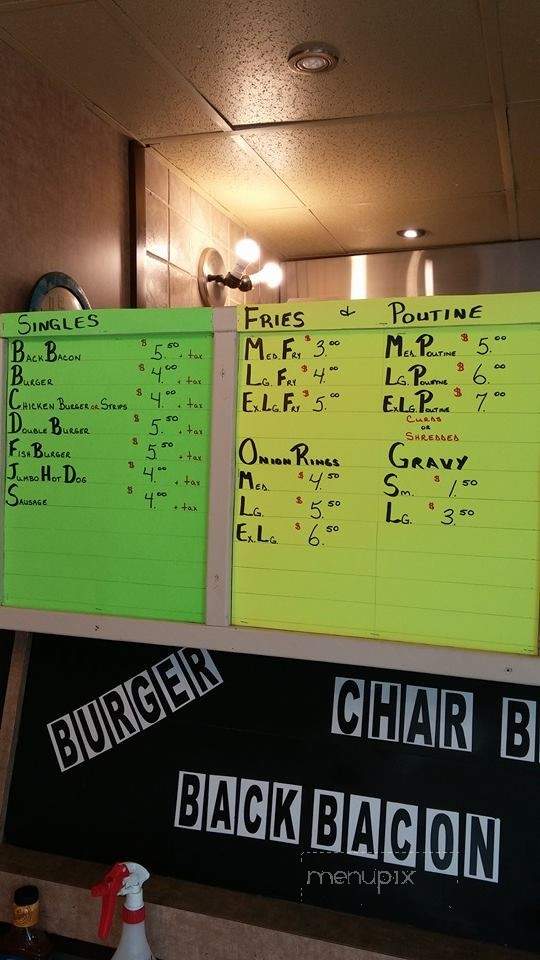 SINGLES
BACK BACON $5.50 + tax
BURGER $4.00 + tax
CHICKEN BURGER OR STRIPS $4.00 + tax
DOUBLE BURGER $5.50 + tax
FISH BURGER $5.50 + tax
JUMBO HOT DOG $4.00 + tax
SAUSAGE $4.00 + tax
FRIES & POUTINE
MED. FRY $3.00
LG. FRY $4.00
EX LG. FRY $5.00
MED. POUTINE $5.00
LG. POUTINE $6.00
EX LG. POUTINE $7.00
CURDS
OR
SHREDDED
ONION RINGS
MED. $4.50
LG. $5.50
EX LG. $6.50
GRAVY
SM. $1.50
LG. $3.50
BURGER
CHAR B
BACK BACON
menupix